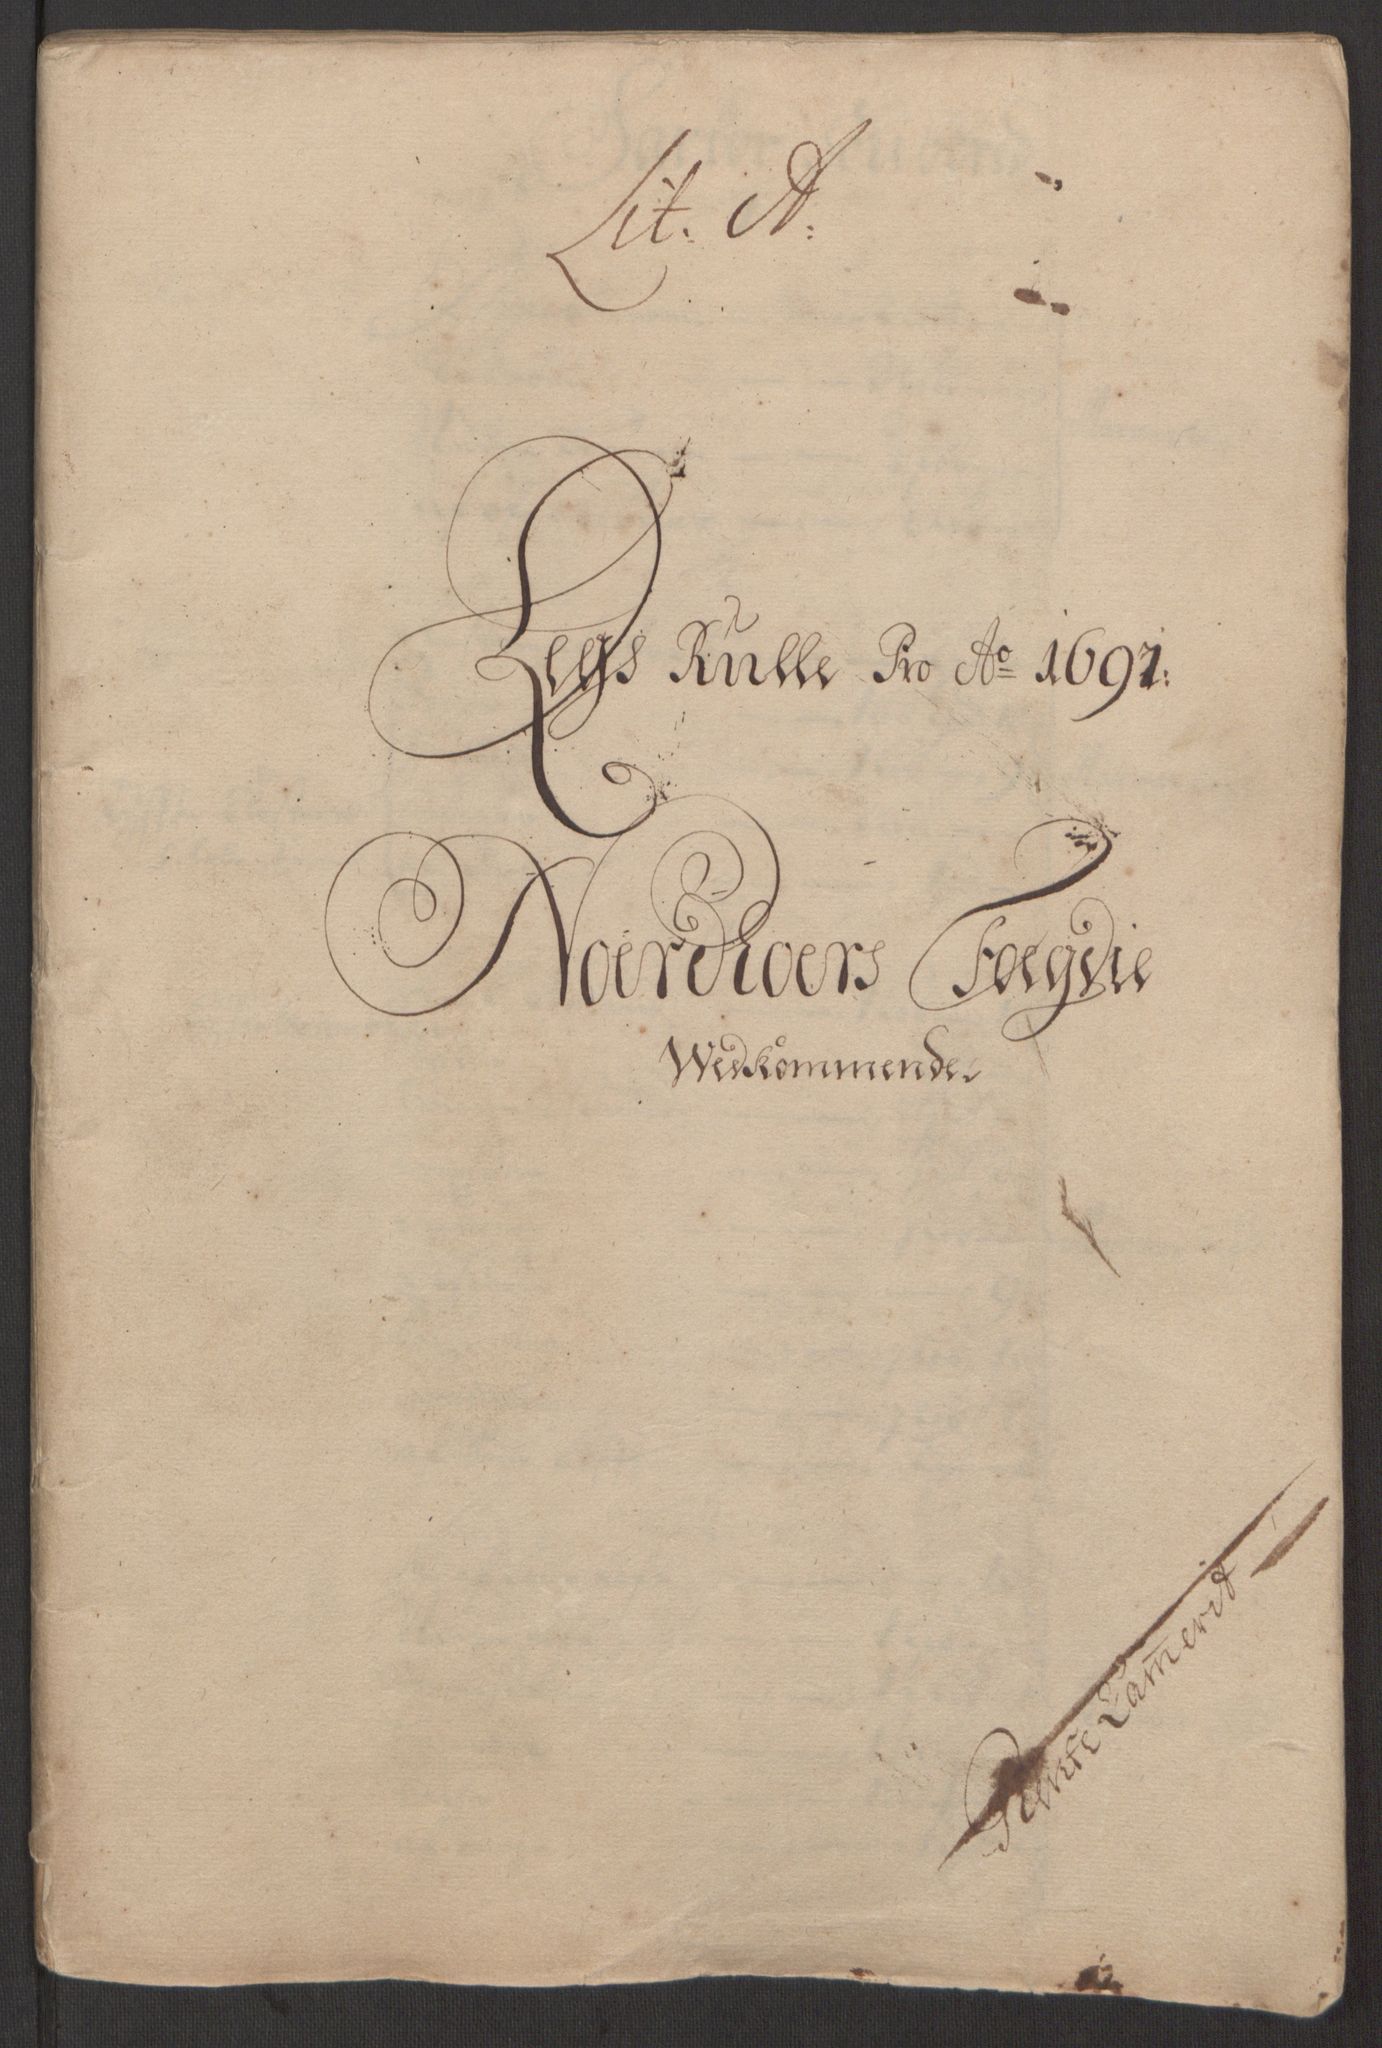 Lit. A:
Legs Rulle Pro Ao 1697:
Noerdhoers Foegdie
Wedkommende.
Rente Camerit